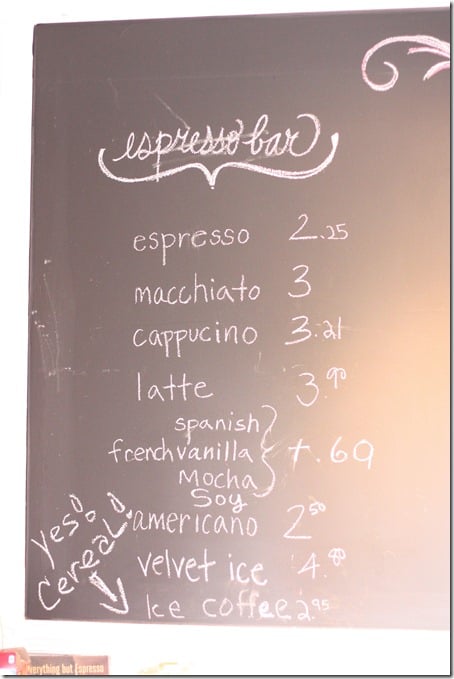 espresso bar
espresso 2.25
macchiato 3
cappucino 3.21
latte 3.90
spanish
french vanilla + .69
Mocha
Soy
americano 2.50
velvet ice 4.90
Ice coffee 2.95
Yes!
Cereal!
everything but Espresso